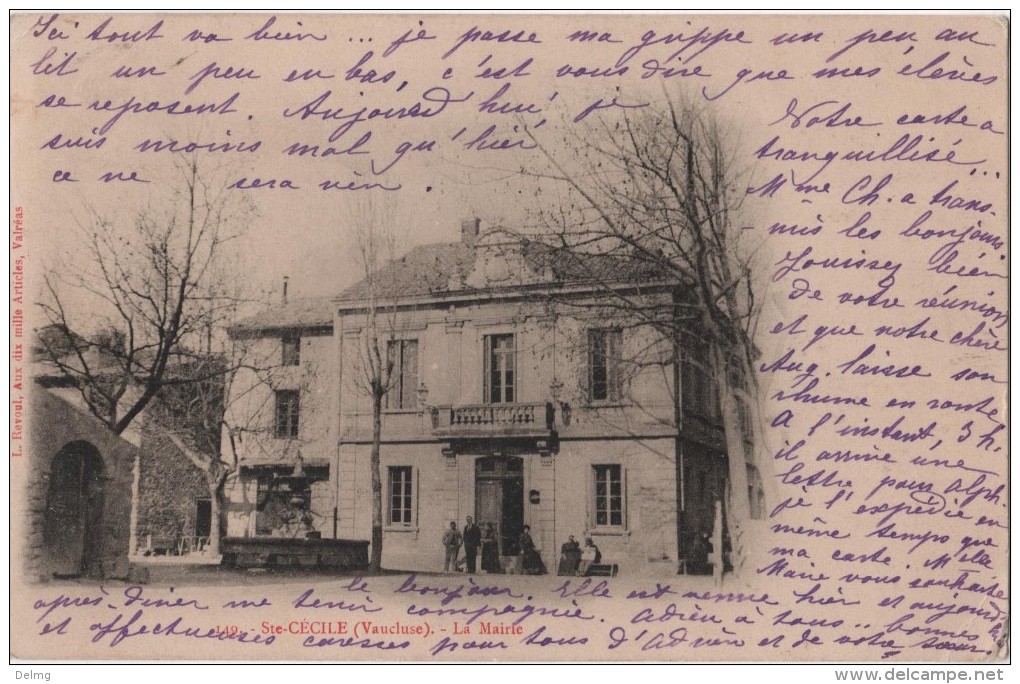 Ici tout va bien ... je passe ma grippe un peu au
lit un peu en bas, c'est vous dire que mes élèves
se reposent. Aujourd'hui je
suis moins mal qu'hier
ce ne sera rien.
Notre carte a
tranquillisé ...
Mme Ch. a trans-
mis les bonjours.
Jouissez bien
de votre réunion
et que notre chère
Aug. laisse son
rhume en route
A l'instant, 3 h,
il arrive une
lettre pour Alph.
je l'expédie en
même temps que
ma carte. Melle
Marie vous souhaite
le bonjour. Elle est venue hier et aujourd'hui
après-diner me tenir compagnie. Adieu à tous .. bonnes
et affectueuses caresses pour tous d'Adrien et de votre sœur.
L. Revoul, Aux dix mille Articles, Valréas
149. - Ste-CÉCILE (Vaucluse). - La Mairie
Delmg
www.delcampe.net